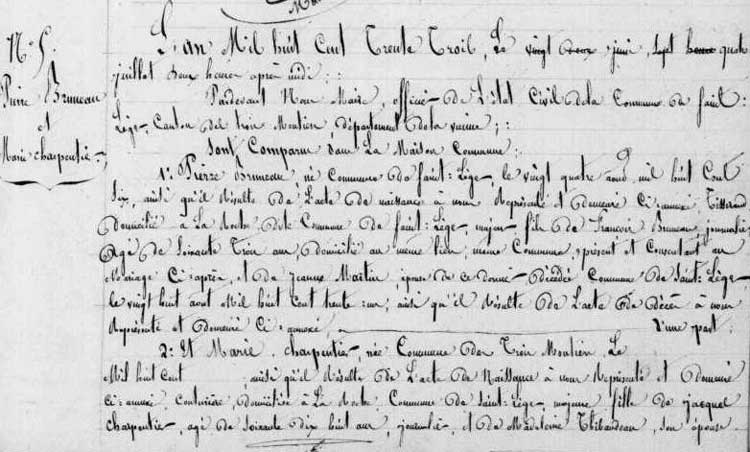 N.° 5.
Pierre Bruneau
et
Marie charpentier
L'an Mil huit Cent Trente Trois, Le vingt juin, sept quatre
juillet Deux heures après midi :
Pardevant Nous Maire, officier De L'état Civil dela Commune De saint:
Lége, Canton des trois Moutiers, département dela vienne ;
sont Comparus dans La Maison Commune :
1.° Pierre Bruneau né Commune De saint: Lége, le vingt quatre août mil huit Cent
six, ainsi qu'il Résulte De L'acte de naissance à nous Représenté et demeuré Ci: annexé, Tisserand
Domicilié à La Commune De saint: Lége, majeur, fils De françois Bruneau journalier
Agé De soixante Trois ans, Domicilié au même lieu, même Commune, présent et Consentant au
Mariage Ci: après, et De jeanne Martin, épouse de ce dernier Décédée Commune De saint: Lége
le vingt huit aout Mil huit Cent trente: un, ainsi qu'il Résulte De L'acte De Décès à nous
Représenté et Demeuré Ci: annexé D'une part:
2.° Et Marie charpentier, née Commune des Trois Moutiers, Le
Mil huit Cent ainsi qu'il Résulte De L'acte De Naissance à nous Représenté et Demeuré
Ci: annexé, Couturière, domiciliée à La Commune De saint: Lége, majeure fille De jacques
Charpentier, agé De soixante dix huit ans, journalier, et De Madeleine Thibaudeau, son épouse